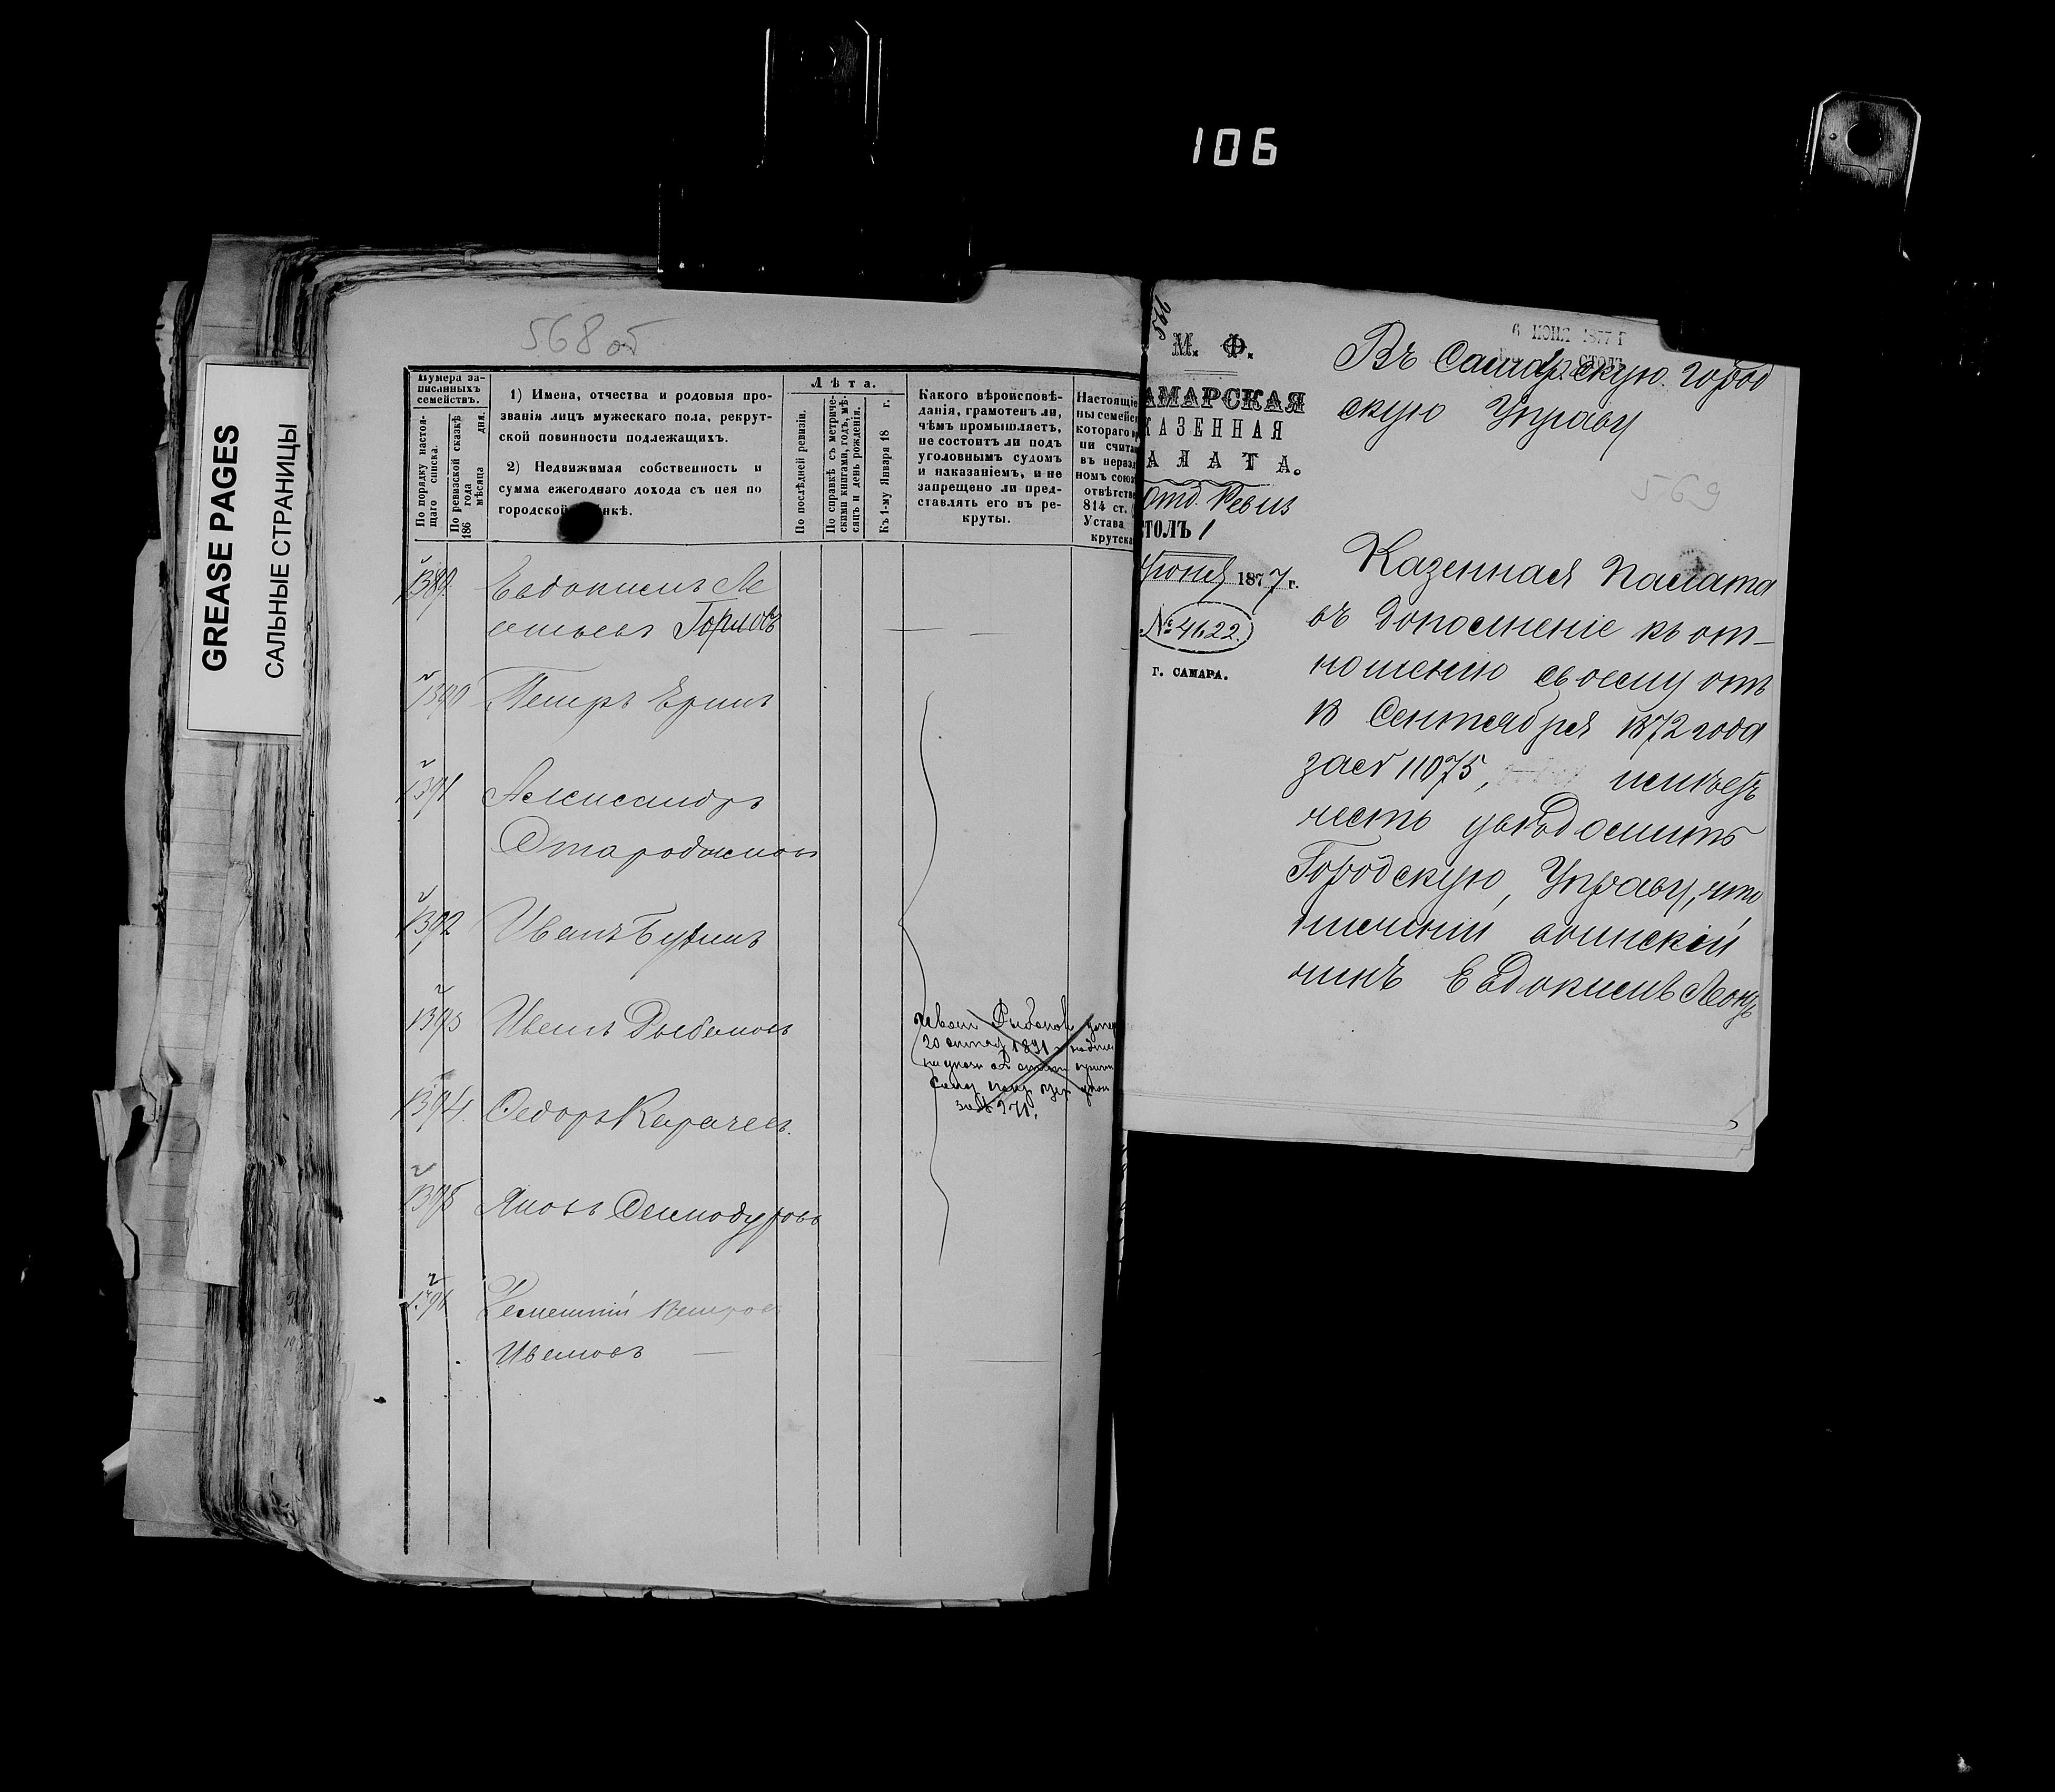 106
GREASE PAGES
САЛЬНЫЕ СТРАНИЦЫ
568 об
Нумера за-
писанныхъ
семействъ.
По порядку настоя-
щаго списка.
По ревизской сказкѣ
186 года
мѣсяца дня.
1) Имена, отчества и родовыя про-
званія лицъ мужескаго пола, рекрут-
ской повинности подлежащихъ.
2) Недвижимая собственность и
сумма ежегоднаго дохода съ нея по
городской
Лѣта.
По послѣдней ревизіи.
По справкѣ съ метриче-
скими книгами, годъ, мѣ-
сяцъ и день рожденія.
Къ 1-му Января 18 г.
Какого вѣроисповѣ-
данія, грамотенъ ли,
чѣмъ промышляетъ,
не состоитъ ли подъ
уголовнымъ судомъ
и наказаніемъ, и не
запрещено ли пред-
ставлять его въ ре-
круты.
Настоящіе
ны семейс
котораго
ни счита
въ нераз
номъ союз
отвѣтстве
814 ст.
Устава
крутска
1389. Евдокимъ Ле
онтьевъ Горловъ
1390 Петръ Еринъ
1391 Александръ
Стародымовъ
1392 Иванъ
1393 Иванъ Рыбаковъ
Иванъ Рыбаковъ умер
20 1891
271.
1394. Федоръ Карачевъ.
1395 Яковъ
1396 Дементій Петровъ
Ивановъ
566
М. Ф.
АМАРСКАЯ
КАЗЕННАЯ
АЛАТА.
Отд. Ревиз
ТОЛЪ 1
Іюня 1877 г.
№ 4622.
г. САМАРА.
6 ІЮНЯ 1877 Г
СТОЛЪ
Въ Самарскую Город
скую Управу
569
Казенная Палата
въ дополненіе къ от-
ношенію своему отъ
18 Сентября 1872 года
за № 11075, имѣетъ
честь увѣдомить
Городскую Управу, что
нижній воинскій
чинъ Евдокимъ Леонт